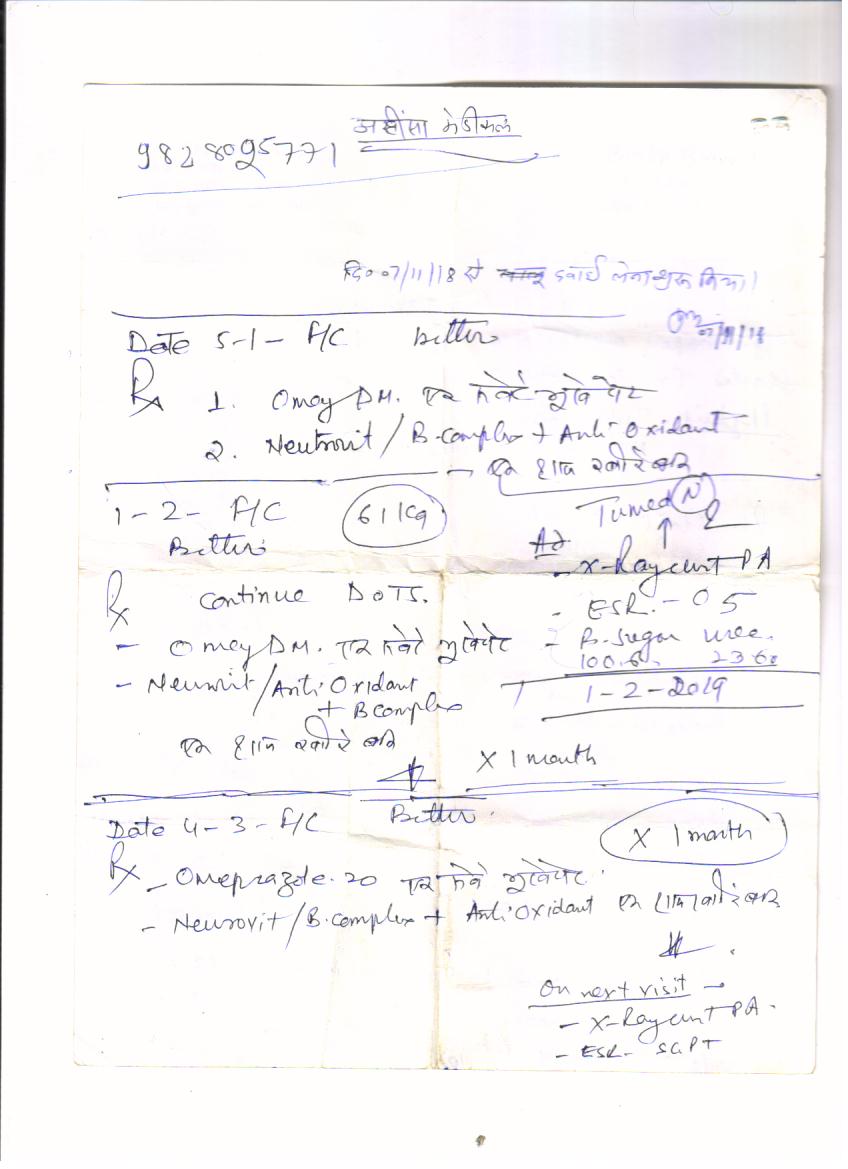 मेडीकल
9828095771
दि० 07/11/18 से दवाई लेना शुरू किया।
07/11/18
Date 5-1- F/C Better
Rx 1. Omey DM. एक सवेरे भूखे पेट
2. Neurovit / B-complex + Anti-Oxidant
- एक शाम खाने के बाद
1-2- F/C 61 kg
Better
Tumed N
Ad
- X-Ray chest PA
- ESR. - 05
- B. Sugar Uree.
100.6 23.60
1-2-2019
Rx Continue DOTS.
- Omey DM. एक सवेरे भूखे पेट
- Neurovit / Anti-Oxidant
+ B complex
एक शाम खाने के बाद
X 1 month
Date 4-3- F/C Better.
X 1 month
Rx - Omeprazole-20 एक सवेरे भूखे पेट
- Neurovit / B.complex + Anti-Oxidant एक शाम खाने के बाद
On next visit -
- X-Ray chest PA.
- ESR - SGPT